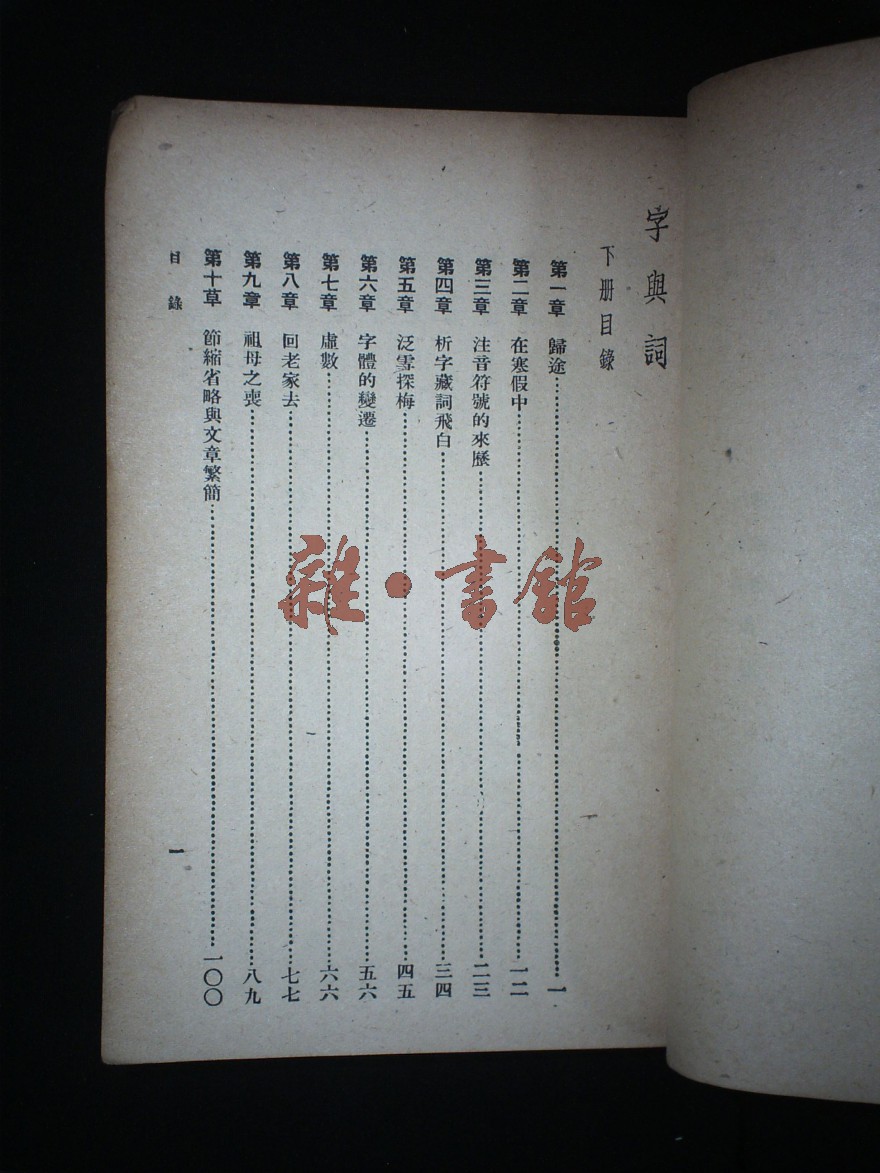 字與詞
下册目錄
第一章 歸途……一
第二章 在寒假中……一二
第三章 注音符號的來歷……二三
第四章 析字藏詞飛白……三四
第五章 泛雪探梅……四五
第六章 字體的變遷……五六
第七章 虛數……六六
第八章 回老家去……七七
第九章 祖母之喪……八九
第十草 節縮省略與文章繁簡……一〇〇
目錄 一
雜·書館